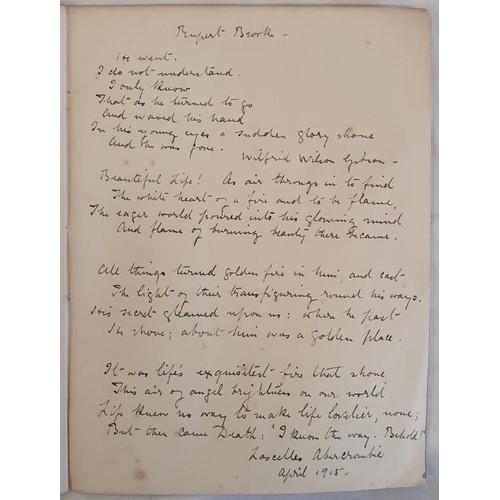 Rupert Brooke –
He went.
I do not understand.
I only know
That as he turned to go
And waved his hand
In his young eyes a sudden glory shone
And he was gone.
Wilfrid Wilson Gibson –
Beautiful Life! As air throngs in to find
The white heart of a fire and to be flame,
The eager world poured into his glowing mind
And flame of burning beauty there became.
All things turned golden fire in him, and cast
The light of their transfiguring round his ways.
His secret gleamed upon us: where he past
He shone; about him was a golden place.
It was life's exquisitest fire that shone
This air of angel brightness on our world
Life knew no way to make life lovelier, none;
But then came Death: 'I know the way. Behold!'
Lascelles Abercrombie
April 1915.